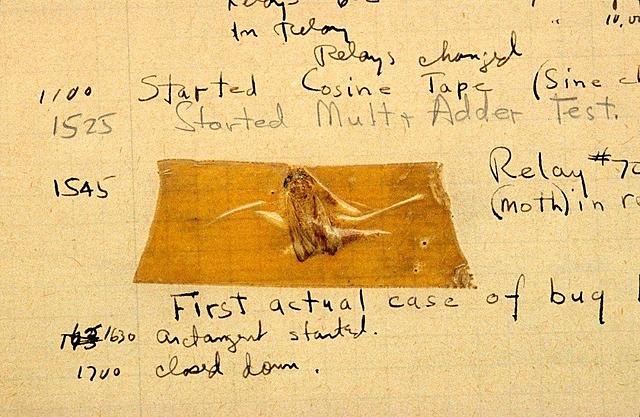 Relays
10,00
In Relay
Relays changed
1100 Started Cosine Tape (Sine c
1525 Started Mult + Adder Test.
1545 Relay #70
(moth) in re
First actual case of bug
1630 arctangent started.
1700 closed down.